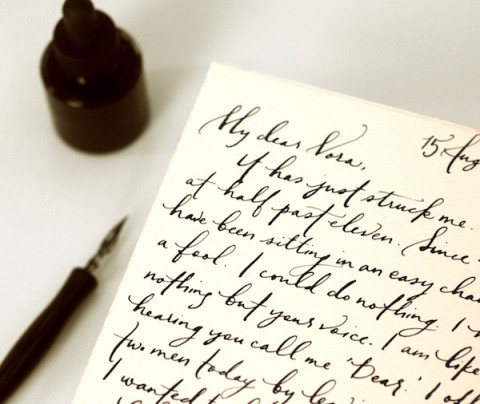 My dear Nora, 15 Aug
It has just struck me.
at half past eleven. Since
have been sitting in an easy cha
a fool. I could do nothing. I
nothing but your voice. I am like
hearing you call me 'Dear.' I off
two men today by
I wanted